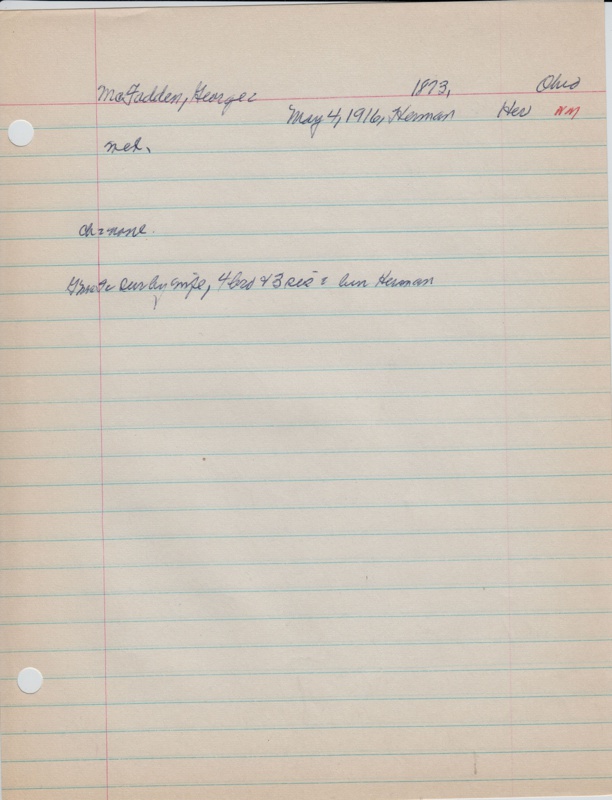 McFadden, George 1873, Ohio
May 4, 1916, Herman Her NM
met.
ch = none.
sur by wife, 4 bro & 3 sis = bur Herman